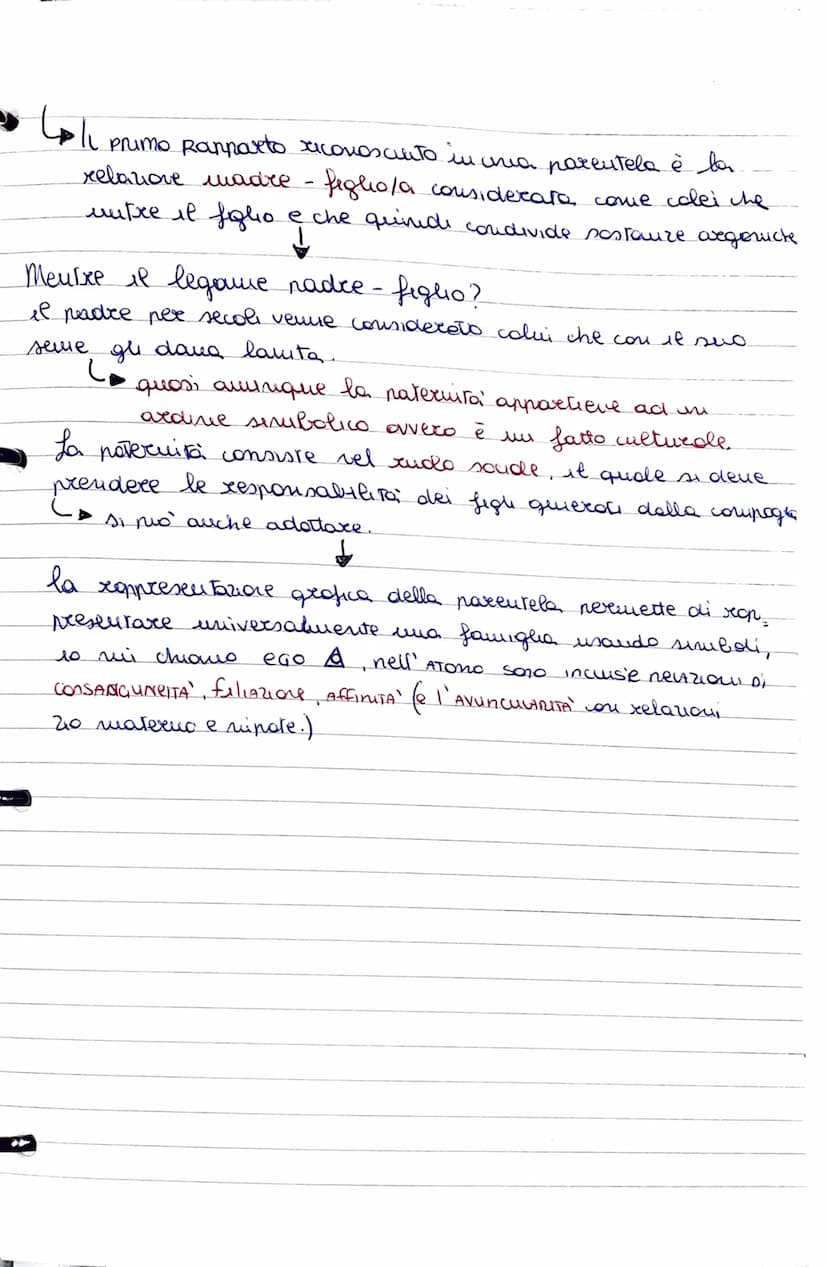 ↳ Il primo Rapporto riconosciuto in una parentela è la
relazione madre - figlio/a considerata come colei che
nutre il figlio e che quindi condivide sostanze organiche
↓
Mentre il legame padre - figlio?
il padre per secoli venne considerato colui che con il suo
seme gli dava la vita.
↳ quasi ovunque la paternità appartiene ad un
ordine simbolico ovvero è un fatto culturale.
La paternità consiste nel ruolo sociale, il quale si deve
prendere le responsabilità dei figli generati dalla compagna
↳ si può anche adottare.
↓
la rappresentazione grafica della parentela permette di rap=
presentare universalmente una famiglia usando simboli,
io mi chiamo EGO △, nell'ATOMO sono incluse relazioni di
CONSANGUNEITÀ, filiazione, AFFINITÀ (e l'AVUNCULARITÀ con relazioni
zio materno e nipote.)